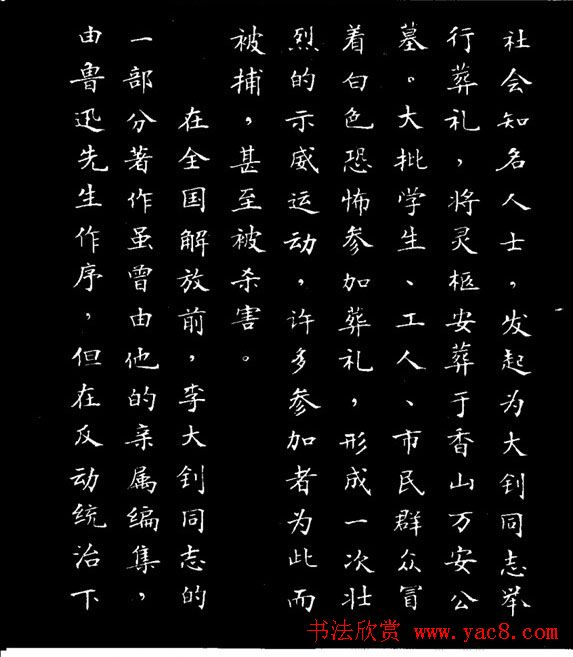 社会知名人士，发起为大钊同志举
行葬礼，将灵柩安葬于香山万安公
墓。大批学生、工人、市民群众冒
着白色恐怖参加葬礼，形成一次壮
烈的示威运动，许多参加者为此而
被捕，甚至被杀害。
在全国解放前，李大钊同志的
一部分著作虽曾由他的亲属编集，
由鲁迅先生作序，但在反动统治下
书法欣赏 www.yac8.com